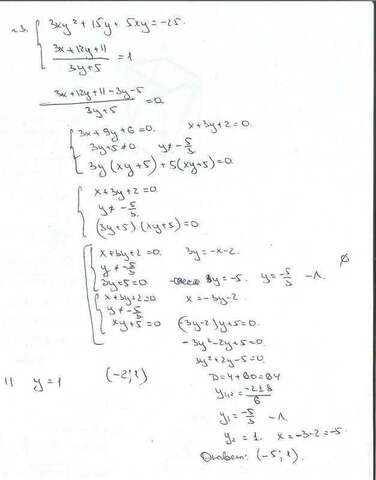 1.3. { 3xy² + 15y + 5xy = -25.
(3x+12y+11)/(3y+5) = 1
(3x+12y+11-3y-5)/(3y+5) = 0.
{ 3x+9y+6=0. x+3y+2=0.
3y+5≠0 y≠-5/3
3y(xy+5)+5(xy+5)=0
{ x+3y+2=0.
y≠-5/3.
(3y+5)(xy+5)=0
[ { x+3y+2=0. 3y=-x-2.
y≠-5/3
3y+5=0 3y=-5. y=-5/3 -Л. ∅
{ x+3y+2=0 x=-3y-2
y≠-5/3
xy+5=0 (-3y-2)y+5=0.
-3y²-2y+5=0.
3y²+2y-5=0.
D=4+60=64
y₁,₂=(-2±8)/6
y₁=-5/3 -Л
y₂=1. x=-3-2=-5.
Ответ: (-5;1).
11 y=1 (-2;1)